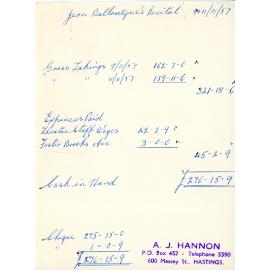 Jean Ballantyne's Recital 9 & 11/11/57
Gross Takings 9/11/57 162-7-0
" " 11/11/57 159-11-6
321-18-6
Expences Paid
Theatre Staff Wages 42-2-9
Foster Brooks Acc 3-0-0
45-2-9
Cash in Hand £276-15-9
Cheque 275-15-0
1-0-9
£276-15-9
A. J. HANNON
P.O. Box 452 - Telephone 3390
600 Massey St., HASTINGS.